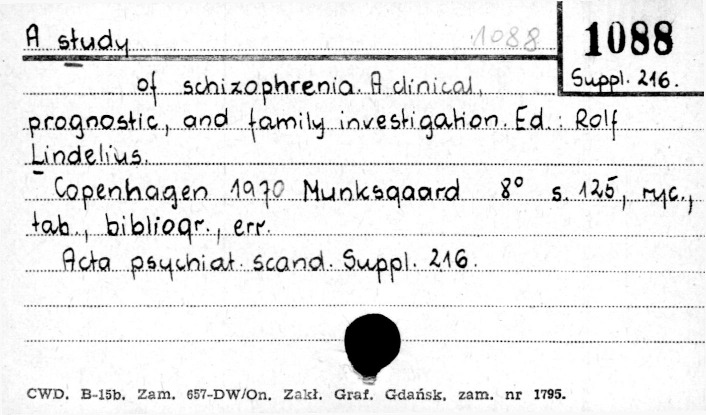 A study 1088 1088
Suppl. 216.
of schizophrenia. A clinical,
prognostic, and family investigation. Ed.: Rolf
Lindelius.
Copenhagen 1970 Munksgaard 8° s. 125, ryc.,
tab., bibliogr., err.
Acta psychiat. scand. Suppl. 216.
CWD. B-15b. Zam. 657-DW/On. Zakł. Graf. Gdańsk, zam. nr 1795.